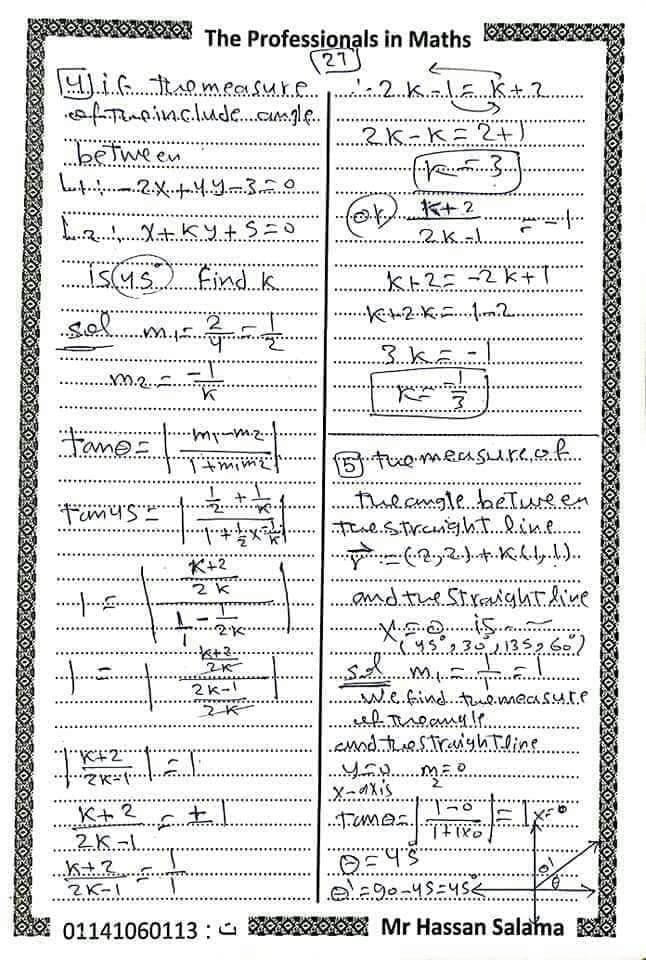 The Professionals in Maths
27
4) if the measure
of the include angle
between
L1: -2x+4y-3=0
L2: x+Ky+5=0
is 45° find k
sol m1=2/4=1/2
m2=-1/k
tanθ=|m1-m2/1+m1m2|
tan45=|1/2+1/k/1+1/2x-1/k|
1=|k+2/2k/1/1-1/2k|
1=|k+2/2k/2k-1/2k|
|k+2/2k-1|=1
k+2/2k-1=±1
k+2/2k-1=1/1
∴2k-1=k+2
2k-k=2+1
k=3
or k+2/2k-1=-1
k+2=-2k+1
k+2k=1-2
3k=-1
k=-1/3
5 the measure of
the angle between
the straight line
r=(2,2)+k(1,1)
and the straight line
x=0 is
(45°,30°,135,60°)
sol m1=1/1=1
we find the measure
of the angle
and the straight line
y=0 m2=0
x-axis
tanθ=|1-0/1+1x0|=1
x=0
θ=45
θ'=90-45=45°
θ'
θ
01141060113 : ت
Mr Hassan Salama